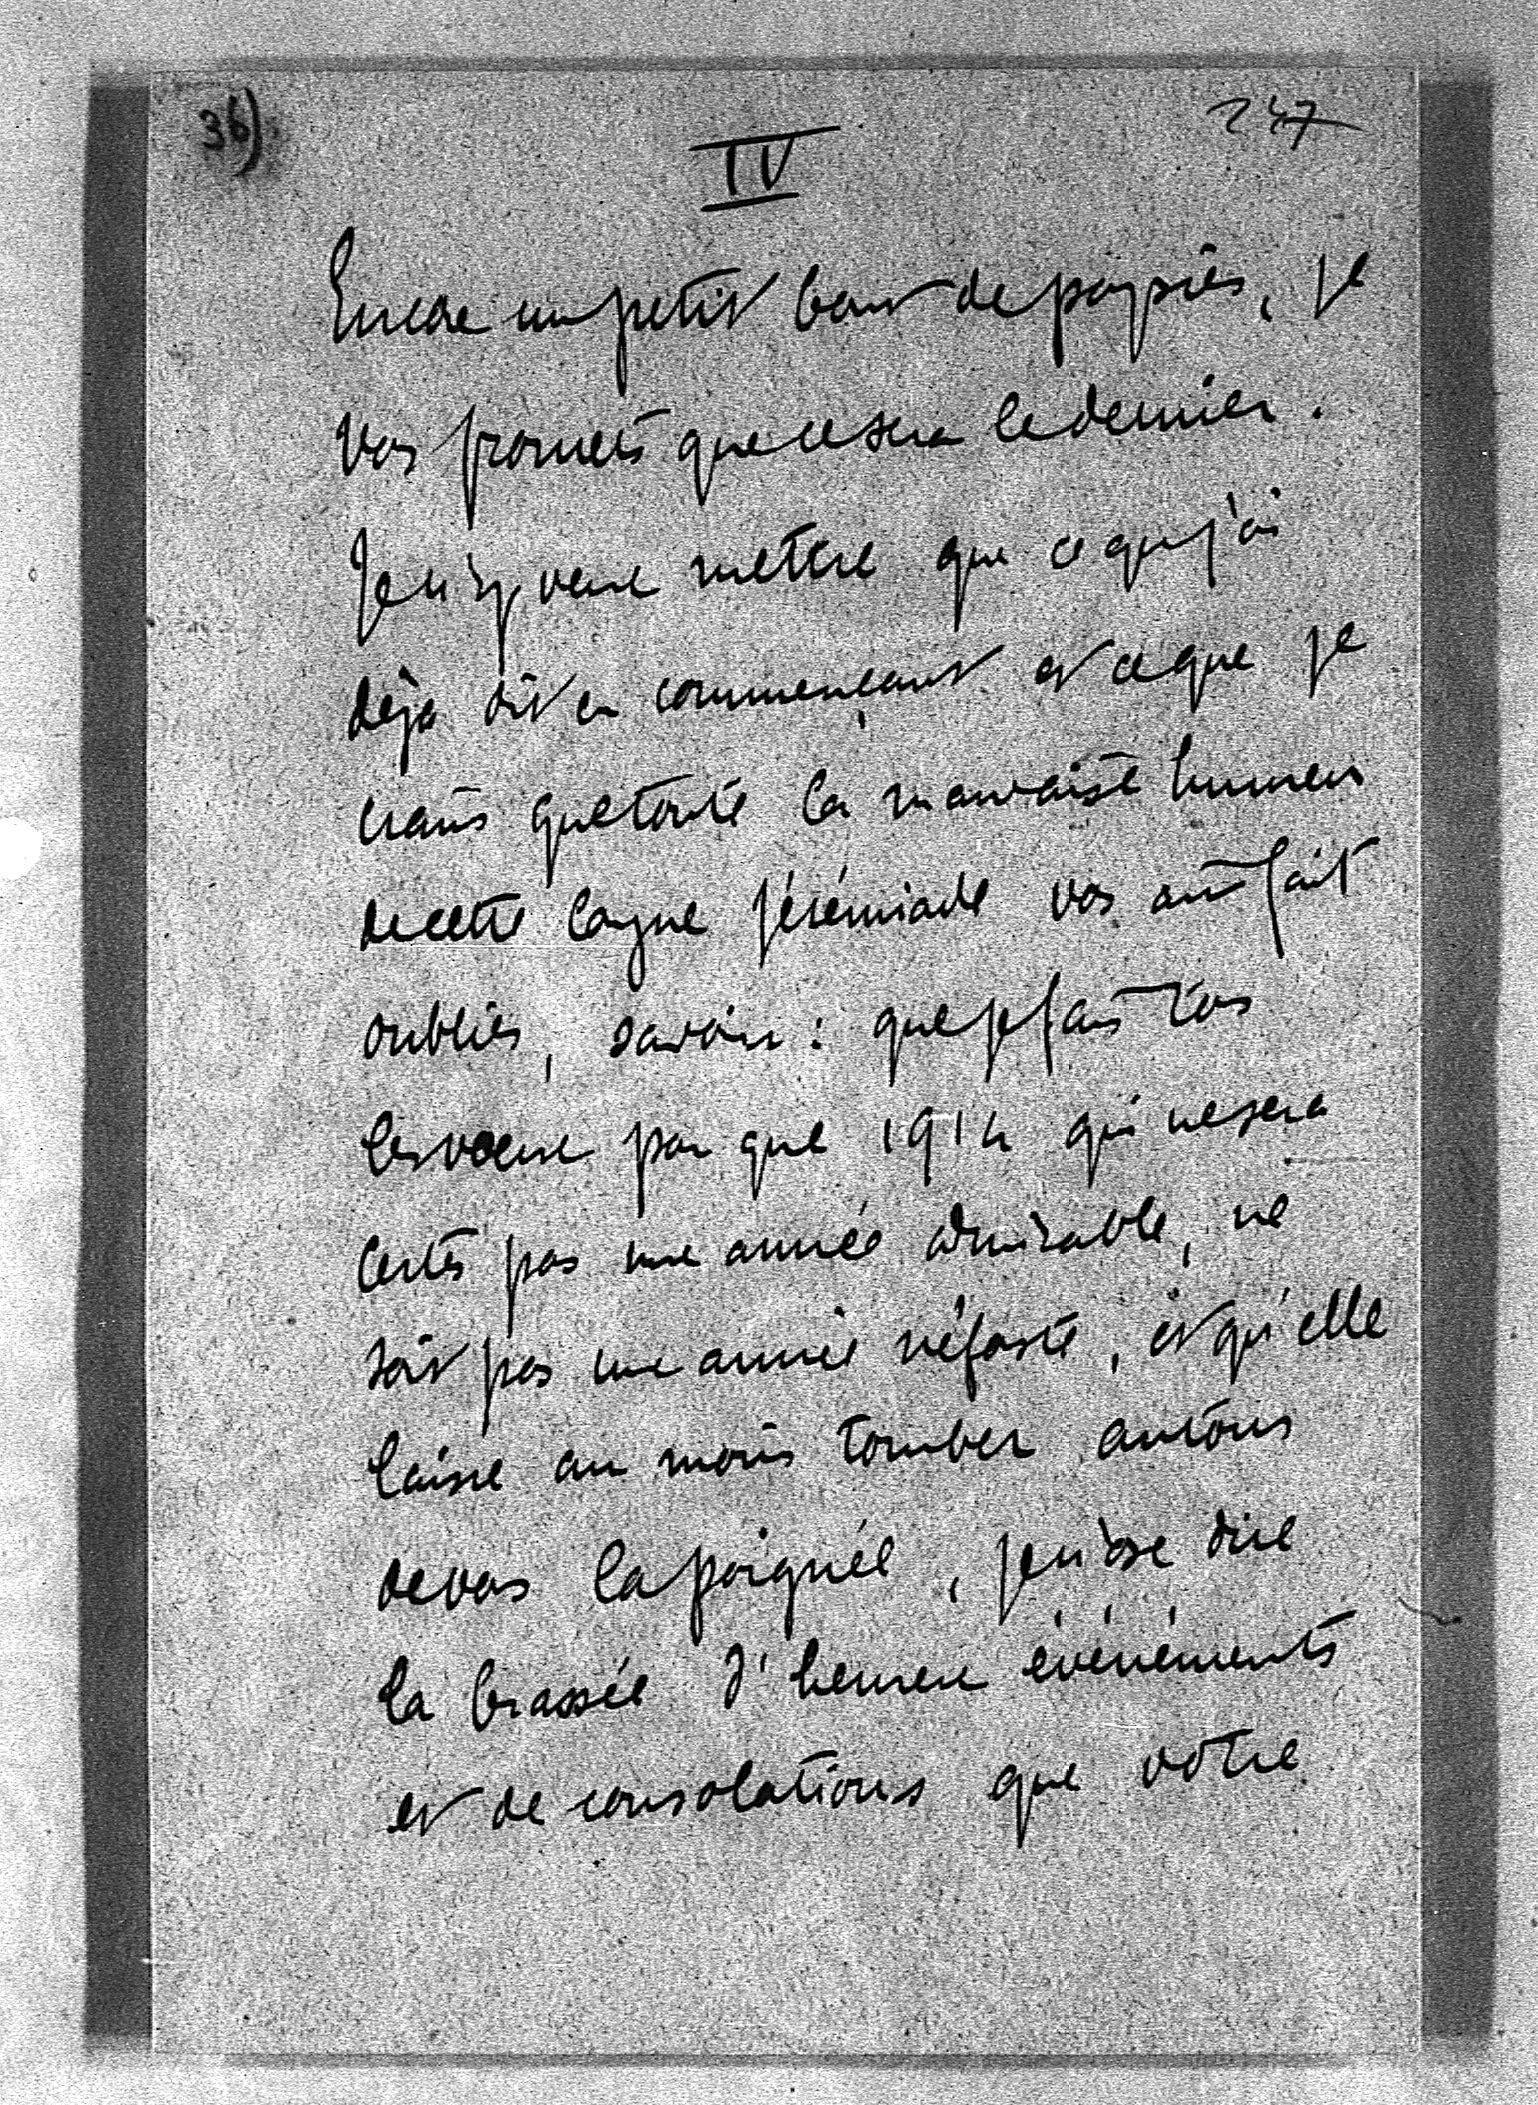 36)
247
IV
Encore un petit bout de papier, je
vous promets que ce sera le dernier.
Je n'y veux mettre que ce que j'ai
déjà dit en commençant et ce que je
crains que toute la mauvaise humeur
de cette longue jérémiade vous ait fait
oublier, savoir : que je fais tous
les voeux pour que 1914 qui ne sera
certes pas une année admirable, ne
soit pas une année néfaste, et qu'elle
laisse au moins tomber autour
de vous la poignée, je n'ose dire
la brassée d'heureux événements
et de consolations que votre